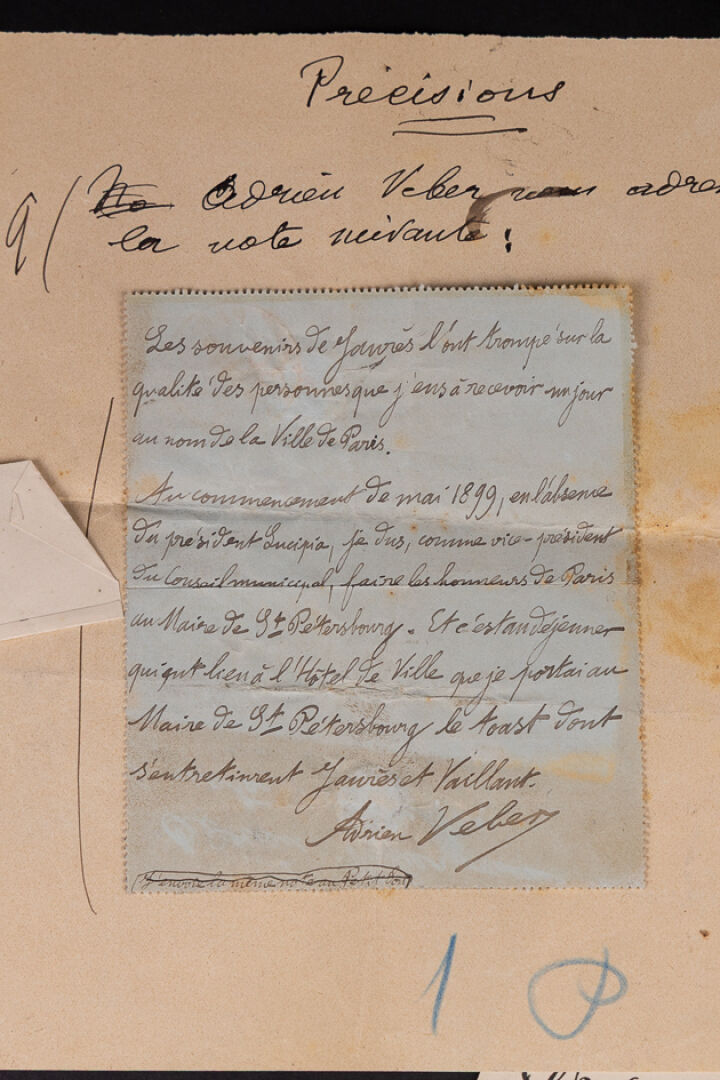 Précisions
9 ( Adrien Veber nous adres
la note suivante :
Les souvenirs de Jaurès l'ont trompé sur la
qualité des personnes que j'eus à recevoir un jour
au nom de la Ville de Paris.
Au commencement de mai 1899, en l'absence
du président Lucipia, je dus, comme vice-président
du Conseil municipal, faire les honneurs de Paris
au Maire de St Pétersbourg. Et c'est au déjeuner
qui eut lieu à l'Hôtel de Ville que je portai au
Maire de St Pétersbourg le toast dont
s'entretinrent Jaurès et Vaillant.
Adrien Veber
(J'envoie la même note au Petit
1